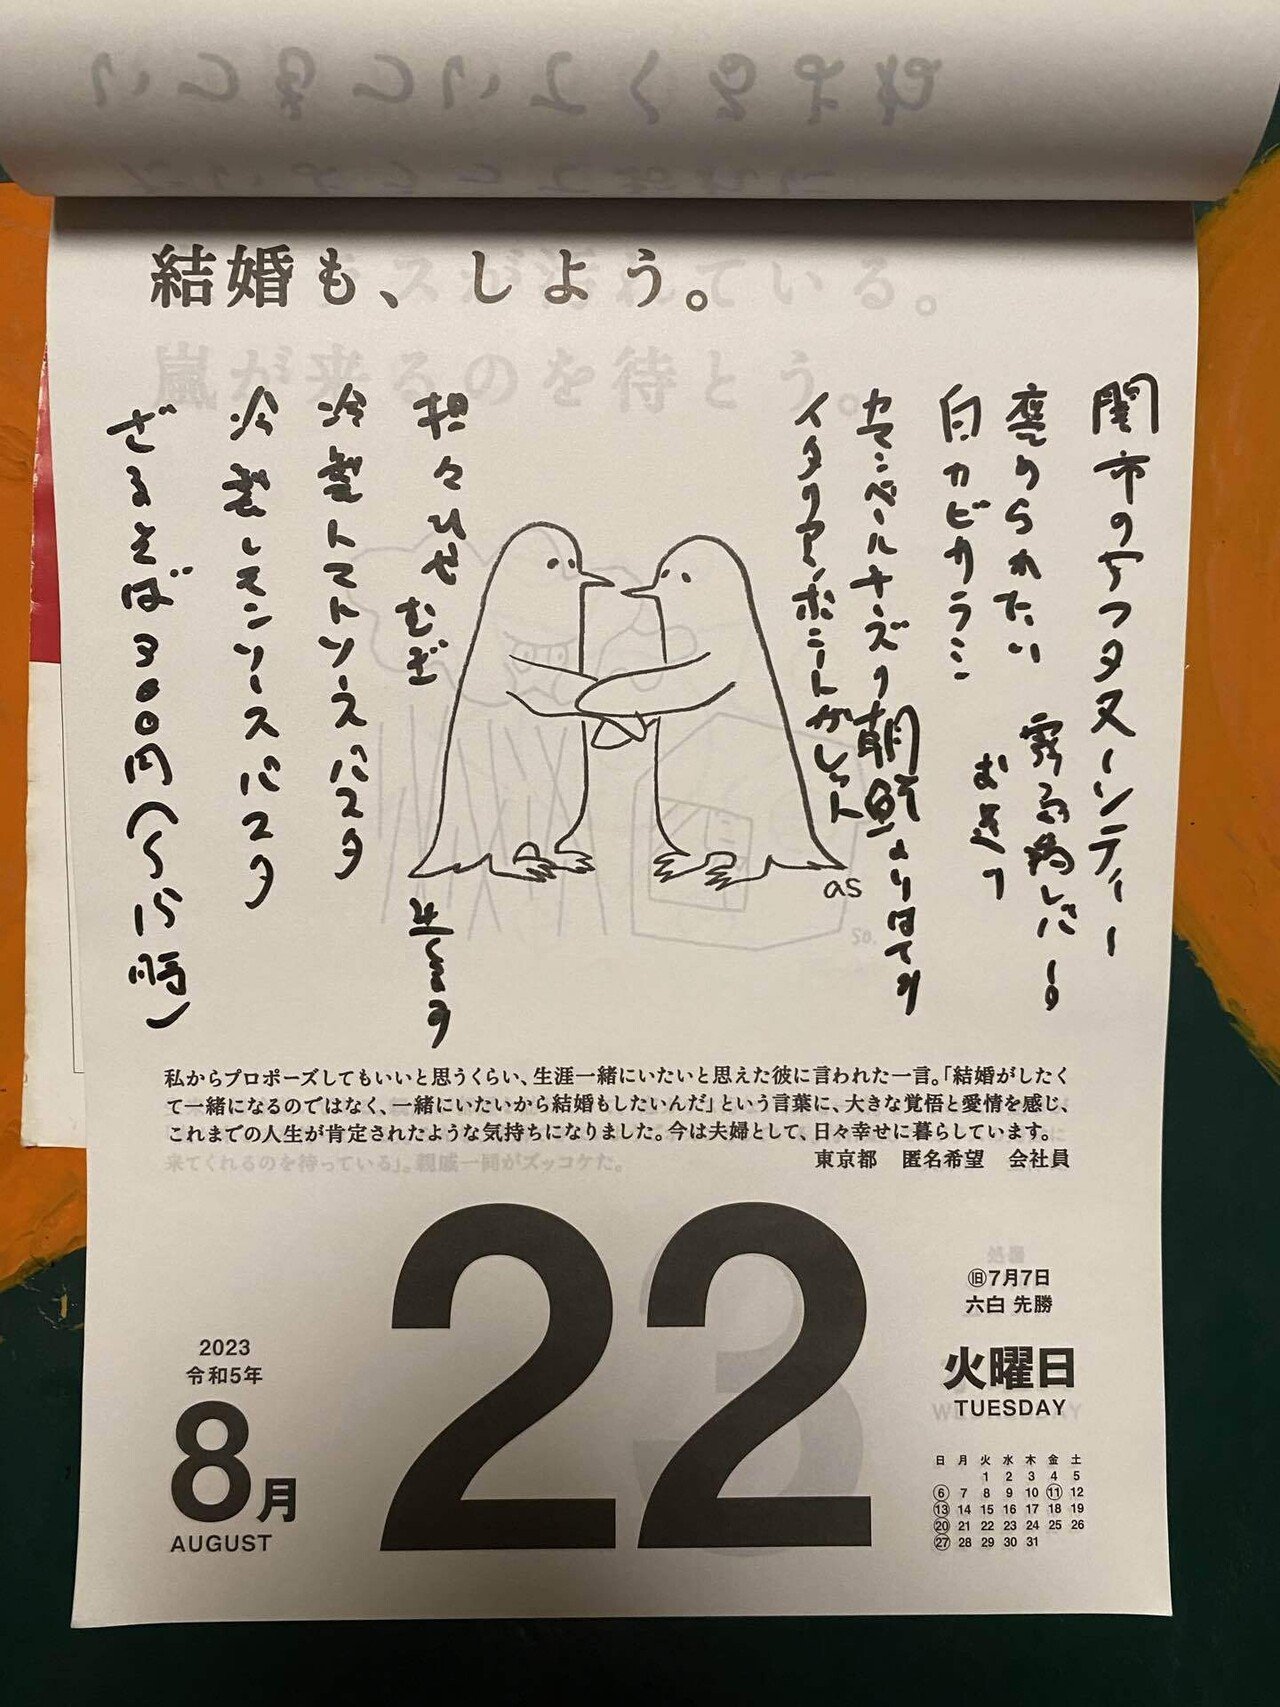 結婚も、しよう。
白カビサラミ
カマンベールチーズの朝
担々ひやむぎ
冷製トマトソースパスタ
冷製レモンソースパスタ
ざるそば300円(〜15時)
as
私からプロポーズしてもいいと思うくらい、生涯一緒にいたいと思えた彼に言われた一言。「結婚がしたく
て一緒になるのではなく、一緒にいたいから結婚もしたいんだ」という言葉に、大きな覚悟と愛情を感じ、
これまでの人生が肯定されたような気持ちになりました。今は夫婦として、日々幸せに暮らしています。
東京都 匿名希望 会社員
22
㊐7月7日
六白 先勝
火曜日
TUESDAY
2023
令和5年
8月
AUGUST
日 月 火 水 木 金 土
1 2 3 4 5
6 7 8 9 10 11 12
13 14 15 16 17 18 19
20 21 22 23 24 25 26
27 28 29 30 31